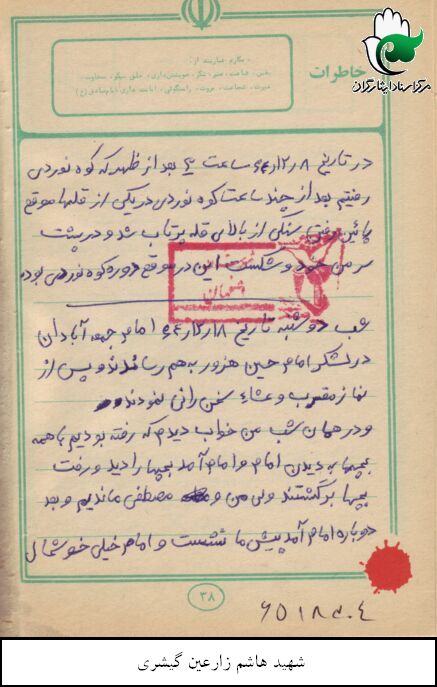 خاطرات
مرکز اسناد ایثارگران
مکارم عبارتند از:
یقین، قناعت، صبر، شکر، خویشتن‌داری، خلق نیکو، سخاوت،
غیرت، شجاعت، مروت، راستگوئی، امانت داری (امام صادق (ع))
در تاریخ ۸/۱۲/۶۴ ساعت ۴ بعد از ظهر که کوه نوردی
رفتیم بعد از چند ساعت کوه نوردی در یکی از قله‌ها موقع
پائین رفتن سنگی از بالای قله پرتاب شد و در پشت
سر من خورد و شکست این در موقع دوره کوه نوردی بوده
شب دوشنبه تاریخ ۸/۱۲/۶۴ امام جمعه آبادان
در لشکر امام حسین حزور به هم رساندند و پس از
نماز مغرب و عشاء سخن رانی نمودند
و در همان شب من خواب دیدم که رفته بودیم با همه
بچه‌ها به دیدن امام و امام آمد بچه‌ها را دید و رفت
بچه‌ها برگشتند ولی من و مصطفی ماندیم و بعد
دوباره امام آمد پیش ما نشست و امام خیلی خوشحال
اصفهان
۳۸
۶۵۱۸۳۰۴
شهید هاشم زارعین گیشری